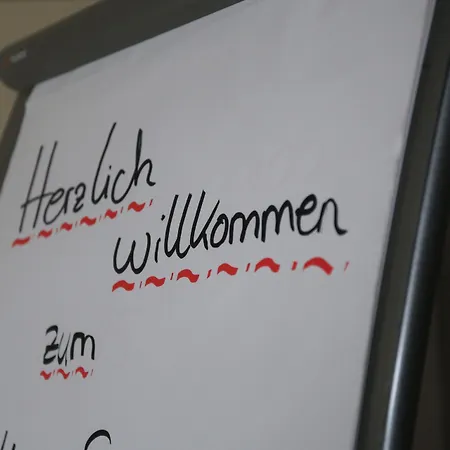 Herzlich
willkommen
zum